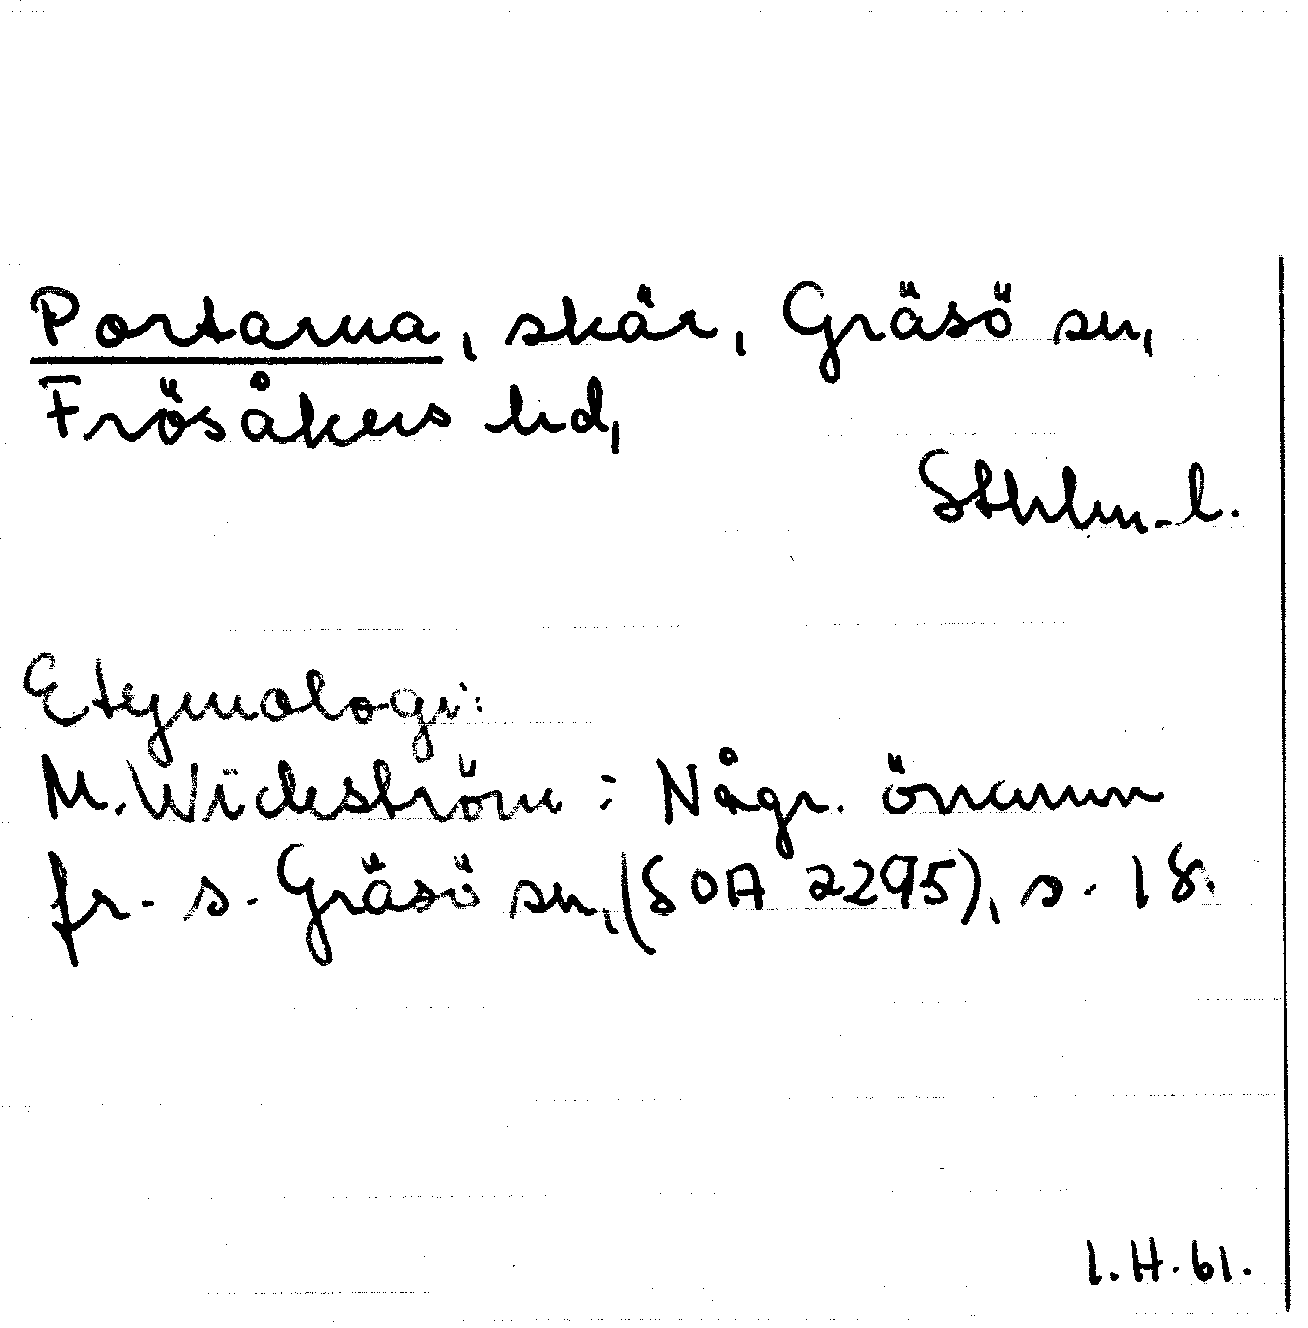 Portarna, skär, Gräsö sn,
Frösåkers hd,
Sthlm-l.
Etymologi:
M. Wickström: Någr. önamn
fr. s. Gräsö sn, (SOA 2295), s. 18.
I.H.61.